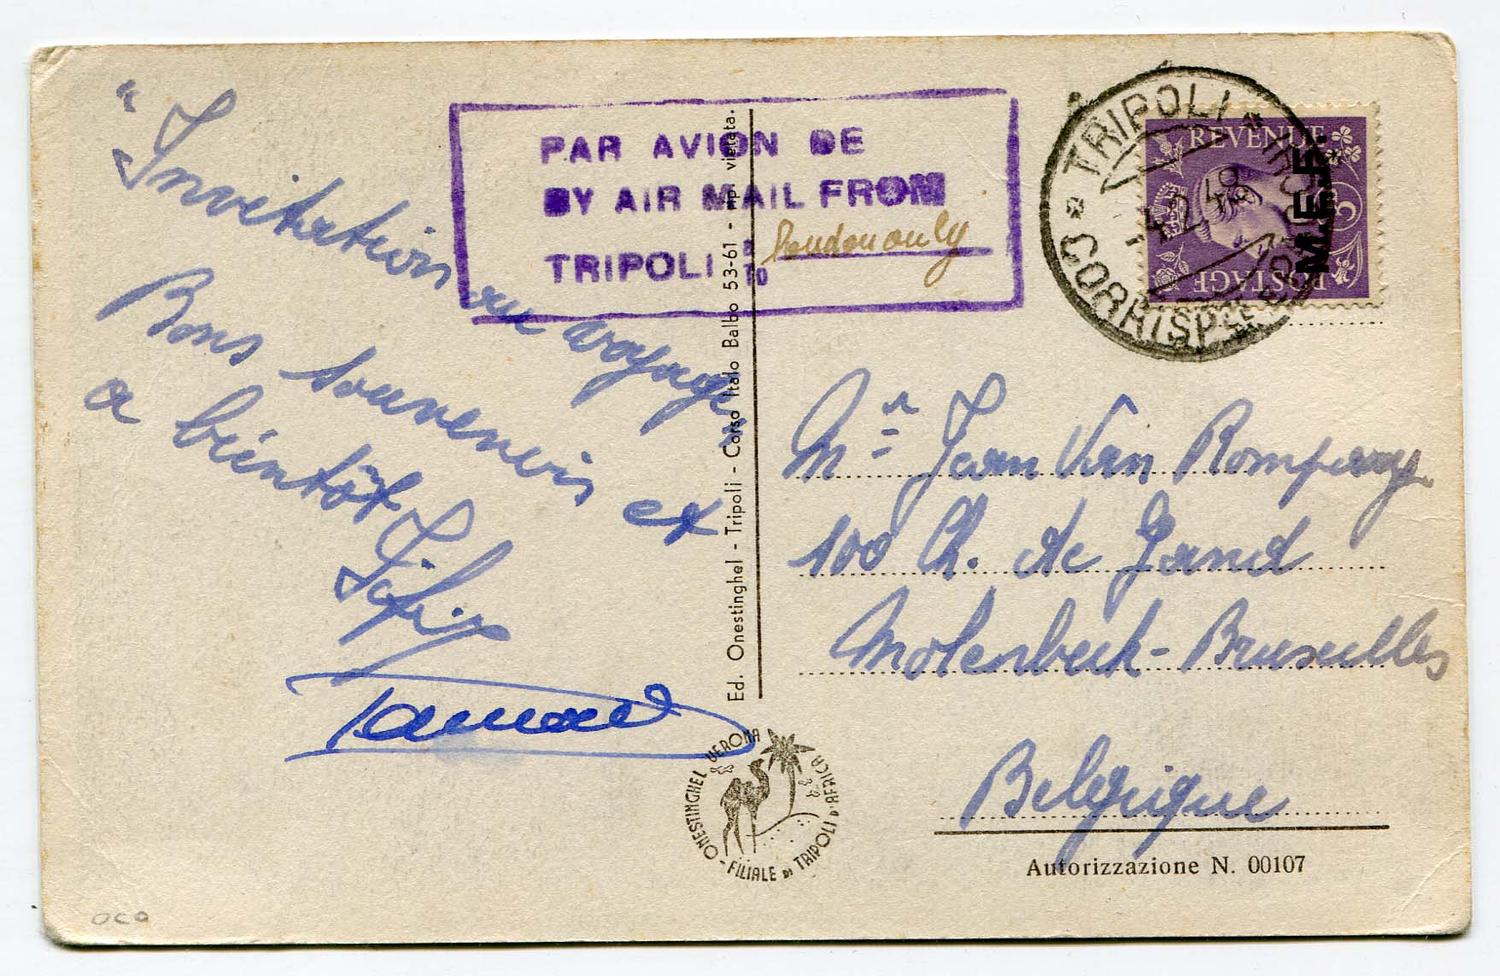 "Invitation au voyage"
Bons souvenirs et
a bientôt
PAR AVION DE
BY AIR MAIL FROM
TRIPOLI À TO London only
TRIPOLI
CORRISP
2.48
REVENUE
POSTAGE
M.E.F.
Mr Jean Van Rompaey
100 Ch. de Gand
Molenbeek-Bruxelles
Belgique
Autorizzazione N. 00107
Ed. Onestinghel - Tripoli - Corso Italo Balbo 53-61 - rip. vietata.
ONESTINGHEL VERONA
- FILIALE DI TRIPOLI D'AFRICA
OCO